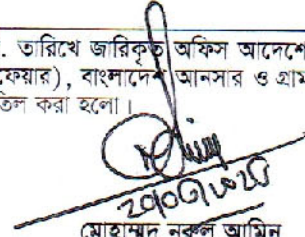 . তারিখে জারিকৃত অফিস আদেশে
ফেয়ার), বাংলাদেশ আনসার ও গ্রাম
তিল করা হলো।
মোহাম্মদ নূরুল আমিন